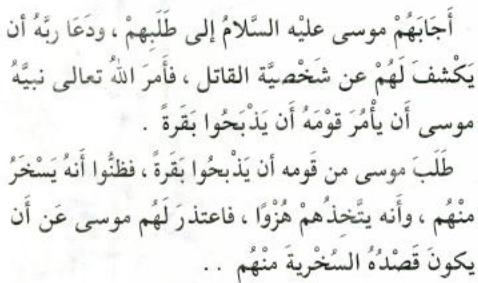 أَجَابَهُمْ موسى عليْه السَّلامُ إلى طَلَبِهِمْ ، ودَعَا ربَّهُ أن
يَكْشفَ لَهُمْ عن شَخْصيَّة القاتل ، فأَمرَ اللهُ تعالى نبيَّهُ
موسى أَن يأْمُرَ قوْمَهُ أَن يَذْبَحُوا بَقرةً .
طَلَبَ موسى من قَومه أن يَذْبحُوا بَقرَةً ، فظنُّوا أَنهُ يَسْخَرُ
منْهُم ، وأَنه يتَّخذُهمْ هُزْوًا ، فاعتذرَ لَهُم موسى عَن أَن
يكونَ قَصْدُهُ السُخْريةَ منْهُم ..